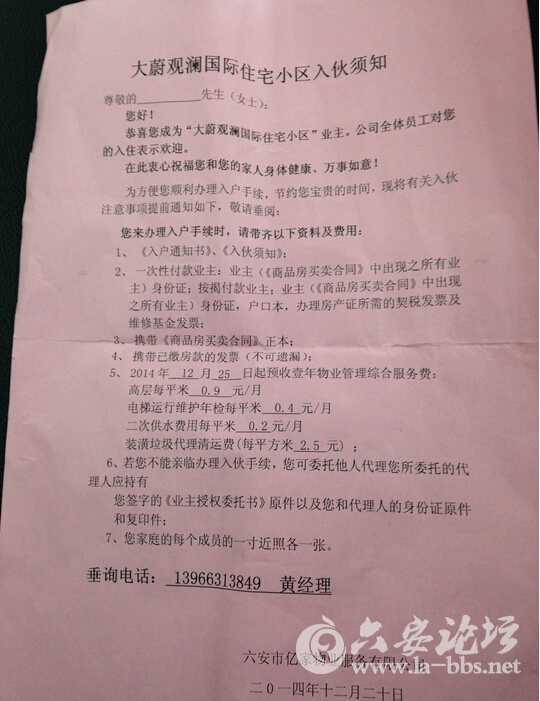 大蔚观澜国际住宅小区入伙须知
尊敬的__________先生(女士):
您好!
恭喜您成为“大蔚观澜国际住宅小区”业主。公司全体员工对您
的入住表示欢迎。
在此衷心祝福您和您的家人身体健康、万事如意!
为方便您顺利办理入户手续,节约您宝贵的时间,现将有关入伙
注意事项提前通知如下,敬请垂阅:
您来办理入户手续时,请带齐以下资料及费用:
1、《入户通知书》、《入伙须知》;
2、一次性付款业主:业主(《商品房买卖合同》中出现之所有业
主)身份证;按揭付款业主:业主(《商品房买卖合同》中出现
之所有业主)身份证,户口本,办理房产证所需的契税发票及
维修基金发票;
3、携带《商品房买卖合同》正本;
4、携带已缴房款的发票(不可遗漏);
5、2014年 12 月 25 日起预收壹年物业管理综合服务费:
高层每平米 0.9 元/月
电梯运行维护年检每平米 0.4 元/月
二次供水费用每平米 0.2 元/月
装潢垃圾代理清运费(每平方米 2.5 元);
6、若您不能亲临办理入伙手续,您可委托他人代理您所委托的代
理人应持有
您签字的《业主授权委托书》原件以及您和代理人的身份证原件
和复印件;
7、您家庭的每个成员的一寸近照各一张。
垂询电话: 13966313849 黄经理
六安市亿家物业服务有限公司
二〇一四年十二月二十日
六安论坛
www.la-bbs.net